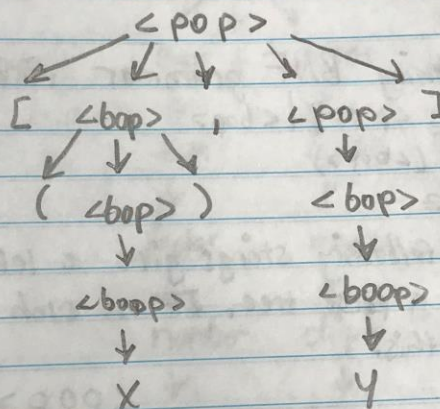 <pop>
[ <bop> , <pop> ]
( <bop> ) <bop>
<boop> <boop>
X y